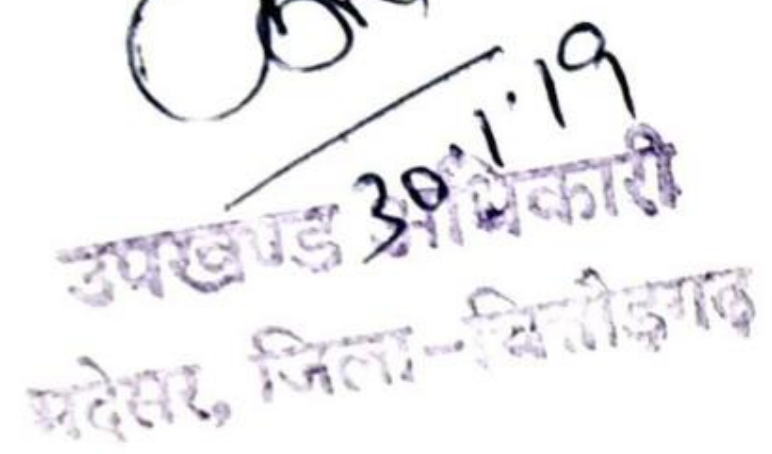 30.1.19
उपखण्ड अधिकारी
भदेसर, जिला-चित्तौड़गढ़